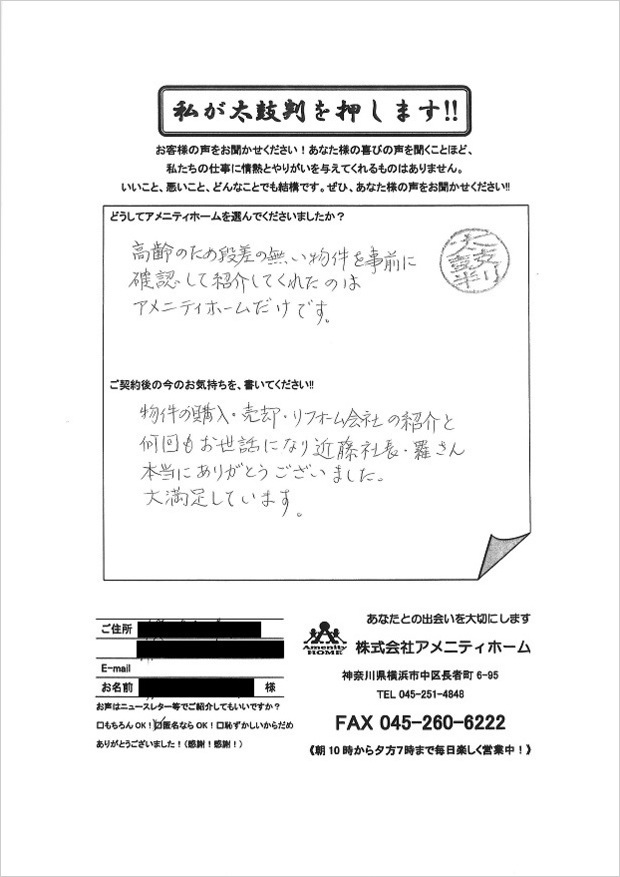 私が太鼓判を押します!!
お客様の声をお聞かせください！あなた様の喜びの声を聞くことほど、
私たちの仕事に情熱とやりがいを与えてくれるものはありません。
いいこと、悪いこと、どんなことでも結構です。ぜひ、あなた様の声をお聞かせください!!
どうしてアメニティホームを選んでくださいましたか？
高齢のため段差の無い物件を事前に
確認して紹介してくれたのは
アメニティホームだけです。
太鼓判
ご契約後の今のお気持ちを、書いてください!!
物件の購入・売却・リフォーム会社の紹介と
何回もお世話になり近藤社長・羅さん
本当にありがとうございました。
大満足しています。
ご住所
E-mail
お名前 様
お声はニュースレター等でご紹介してもいいですか？
□もちろんOK！☑匿名ならOK！□恥ずかしいからだめ
ありがとうございました！（感謝！感謝！）
あなたとの出会いを大切にします
Amenity HOME 株式会社アメニティホーム
神奈川県横浜市中区長者町 6-95
TEL 045-251-4848
FAX 045-260-6222
《朝10時から夕方7時まで毎日楽しく営業中！》